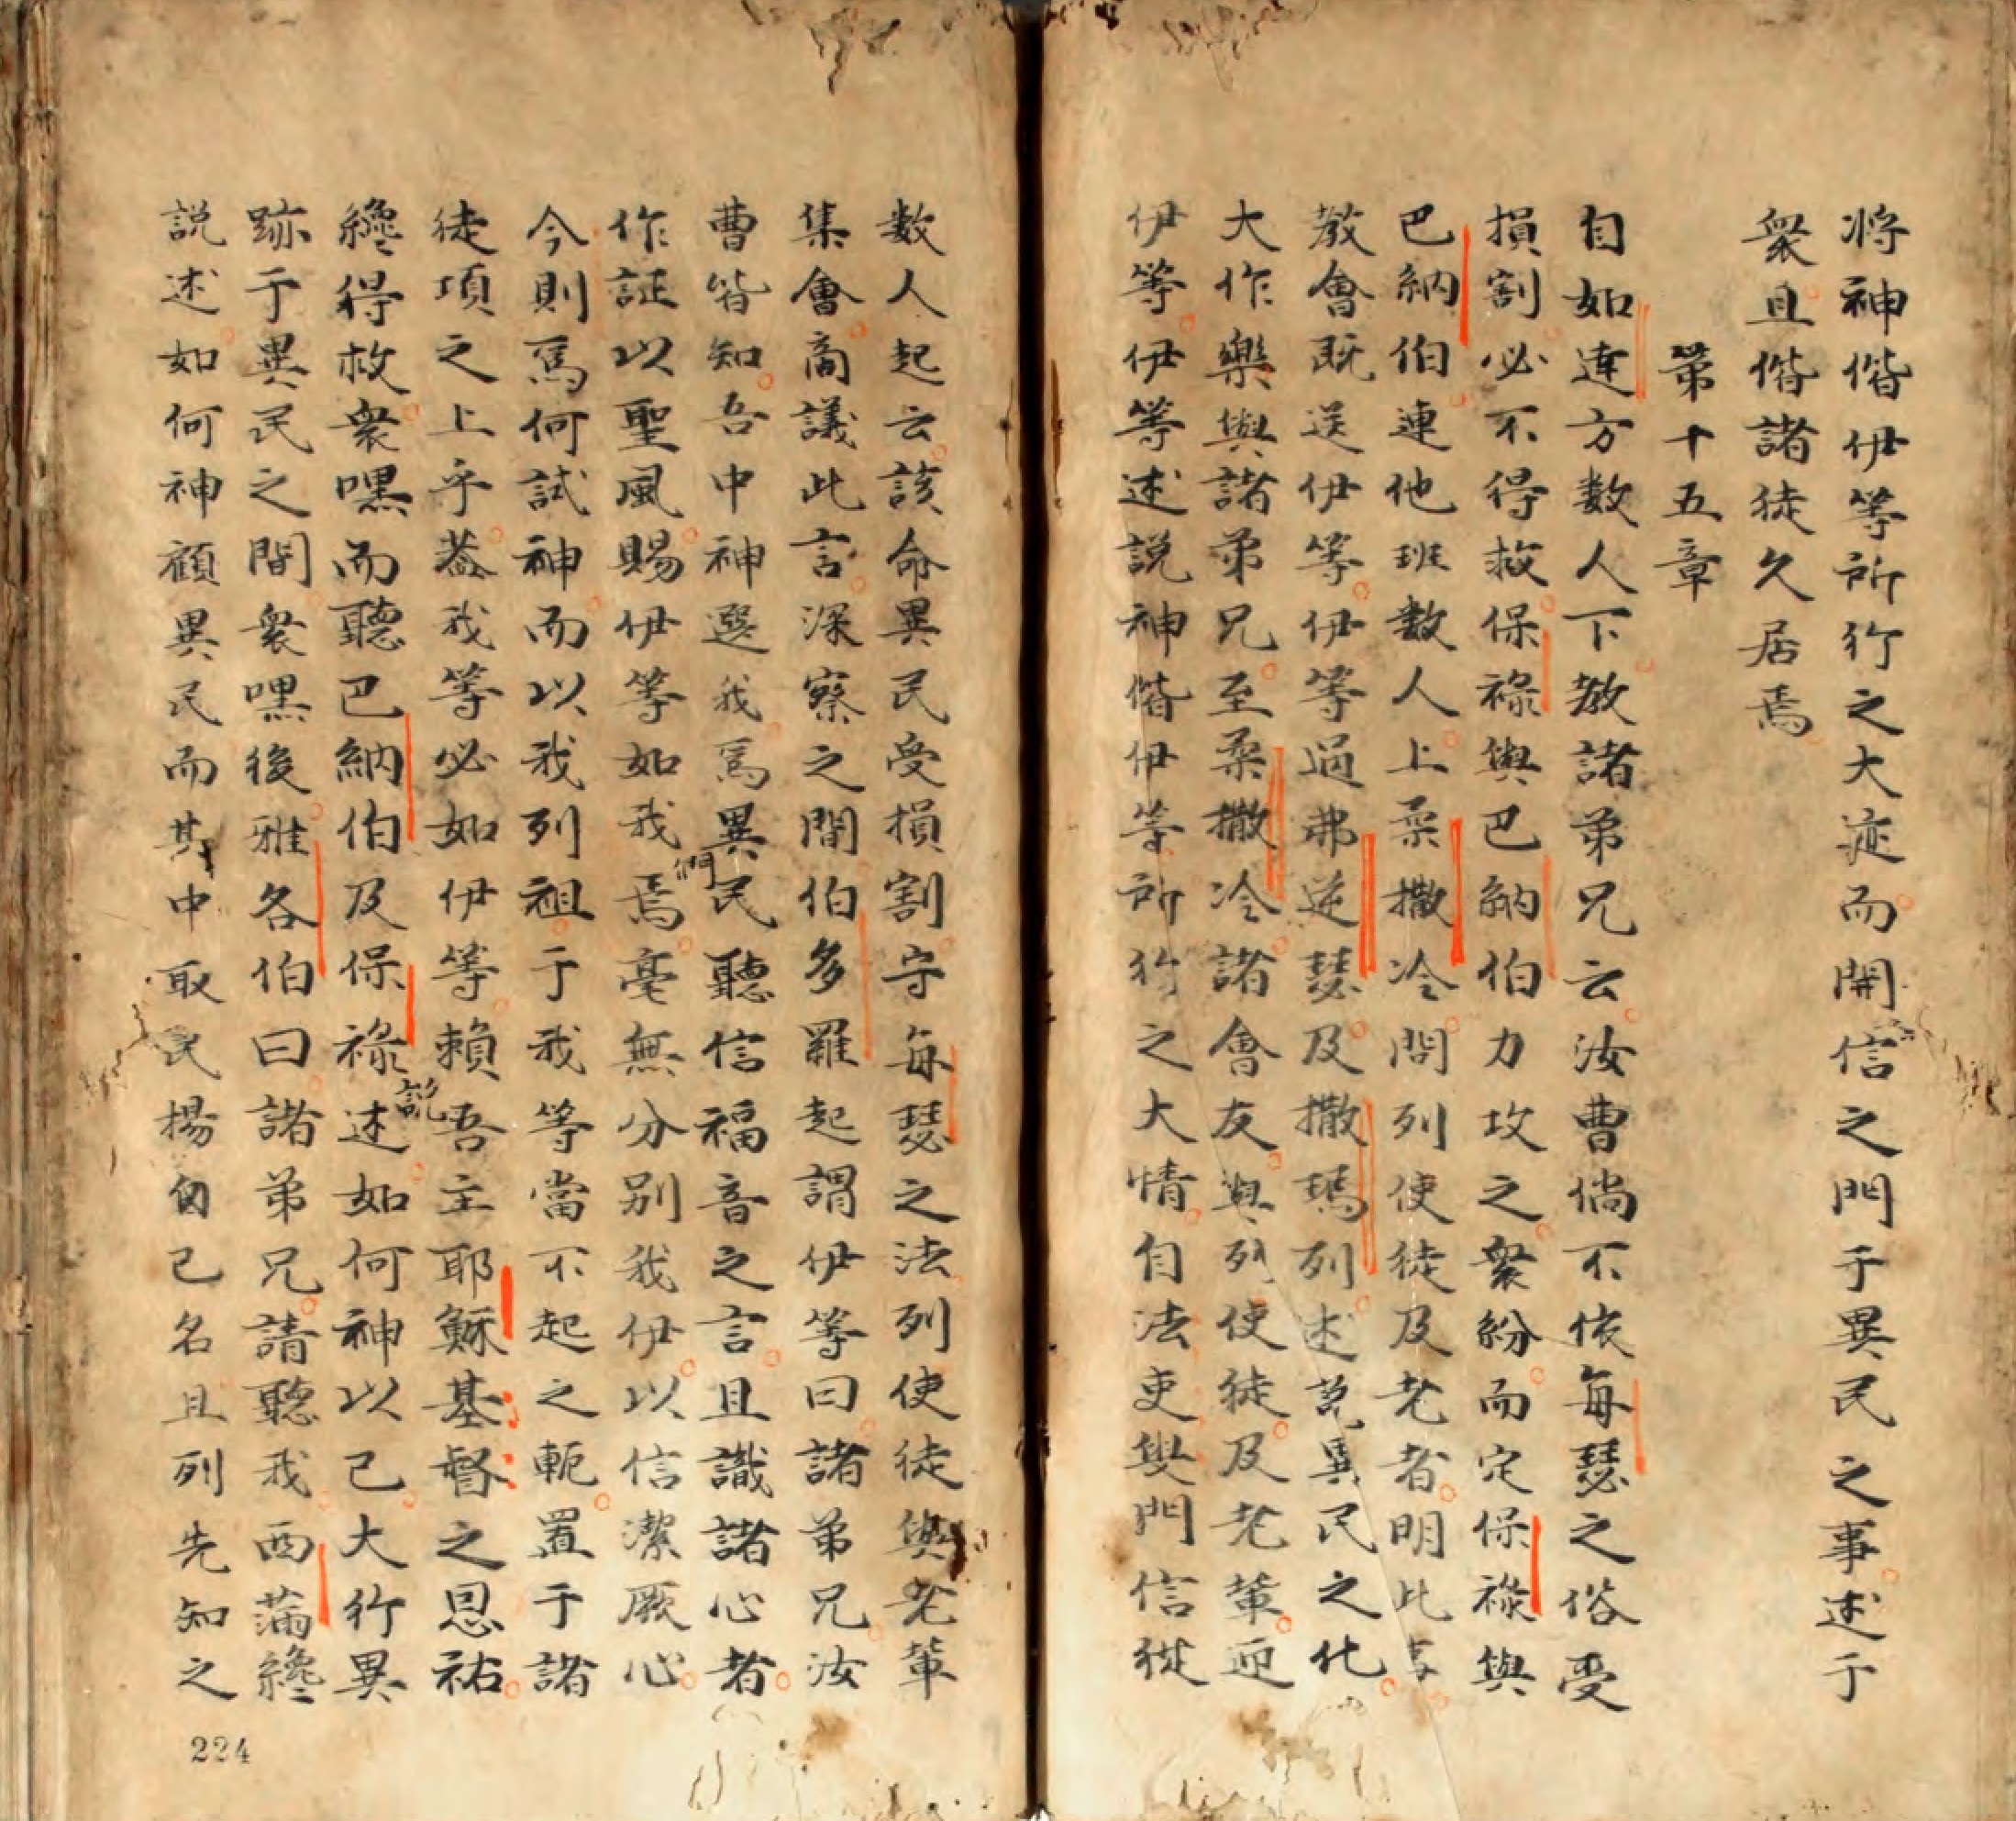 将神偕伊等所行之大迹而開信之門于異民之事述于
衆且偕諸徒久居焉
第十五章
自如達方数人下教諸弟兄云汝曹倘不依每瑟之俗受
損割必不得救保祿與巴納伯力攻之衆紛而定保祿與
巴納伯連他班数人上柔撒冷問列使徒及老者明此事
教會既送伊等伊等過弗逆瑟及撒瑪列述説異民之化
大作樂與諸弟兄至柔撒冷諸會友與列使徒及老輩迎
伊等伊等述説神偕伊等所行之大情自法吏叟門信從
数人起云該命異民受損割守每瑟之法列使徒與老輩
集會商議此言深察之間伯多羅起謂伊等曰諸弟兄汝
曹皆知吾中神選我為異民聽信福音之言且識諸心者
作証以聖風賜伊等如我們焉毫無分别我伊以信潔厥心
今則為何試神而以我列祖于我等當不起之軛置于諸
徒項之上乎蓋我等必如伊等賴吾主耶穌基督之恩祐
纔得救衆嘿而聽巴納伯及保祿述説如何神以己大行異
跡于異民之間衆嘿後雅各伯曰諸弟兄請聽我西満纔
説述如何神顧異民而其中取民揚自己名且列先知之
224